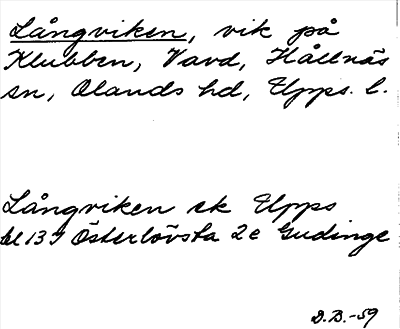 Långviken, vik på
Klubben, Vavd, Hållnäs
sn, Olands hd, Upps. l.
Långviken ek Upps
bl 137 Österlövsta 2e Gudinge
D.B.-59